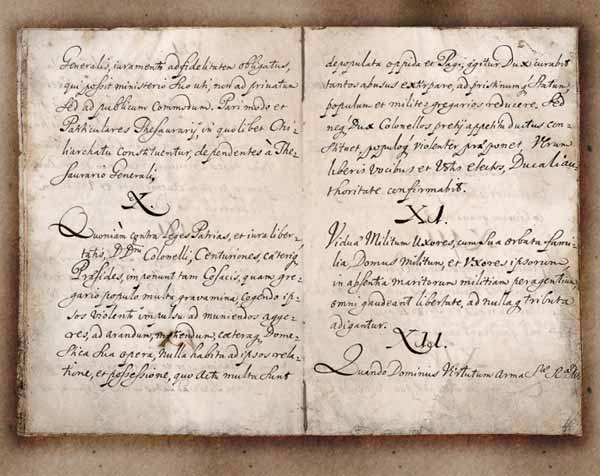 Generalis, iuramento ad fidelitatem obligatus,
qui possit ministerio suo uti, non ad privatum
sed ad publicum Commodum. Pari modo et
Particulares Thesaurarij in quolibet Chi-
liarchatu Constituentur, dependentes à The-
saurario Generali,
X.
Quoniam contra Leges Patrias, et iura liber-
tatis, Colonelli, Centuriones, caeteriq
Praesides, imponunt tam Cosacis, quam gre-
gario populo multa gravamina, Cogendo ip-
sos violento impulsu ad muniendos agge-
res, ad arandum, metendum, caeteraq Dome-
stica sua opera, nulla habita ad ipsos rela-
tione, et possessione, quo actu multa sunt
depopulata oppida et Pagi, igitur Dux curabit
tantos abusus extirpare, ad pristinumq Statum,
populum et milites gregarios reducere, Sed
neq Dux Colonellos pretij appetitu ductus con-
stituet, populoq violenter praeponet, Verum
liberis vocibus et Votis electos, Ducali au-
thoritate confirmabit.
XI.
Viduae Militum Uxores, cum sua orbata fami-
lia, Domus Militum, et Uxores ipsorum,
in absentia maritorum militiam peragentium,
omni gaudeant libertate, ad nullaq tributa
adigantur.
XII.
Quando Dominus Virtutum Arma